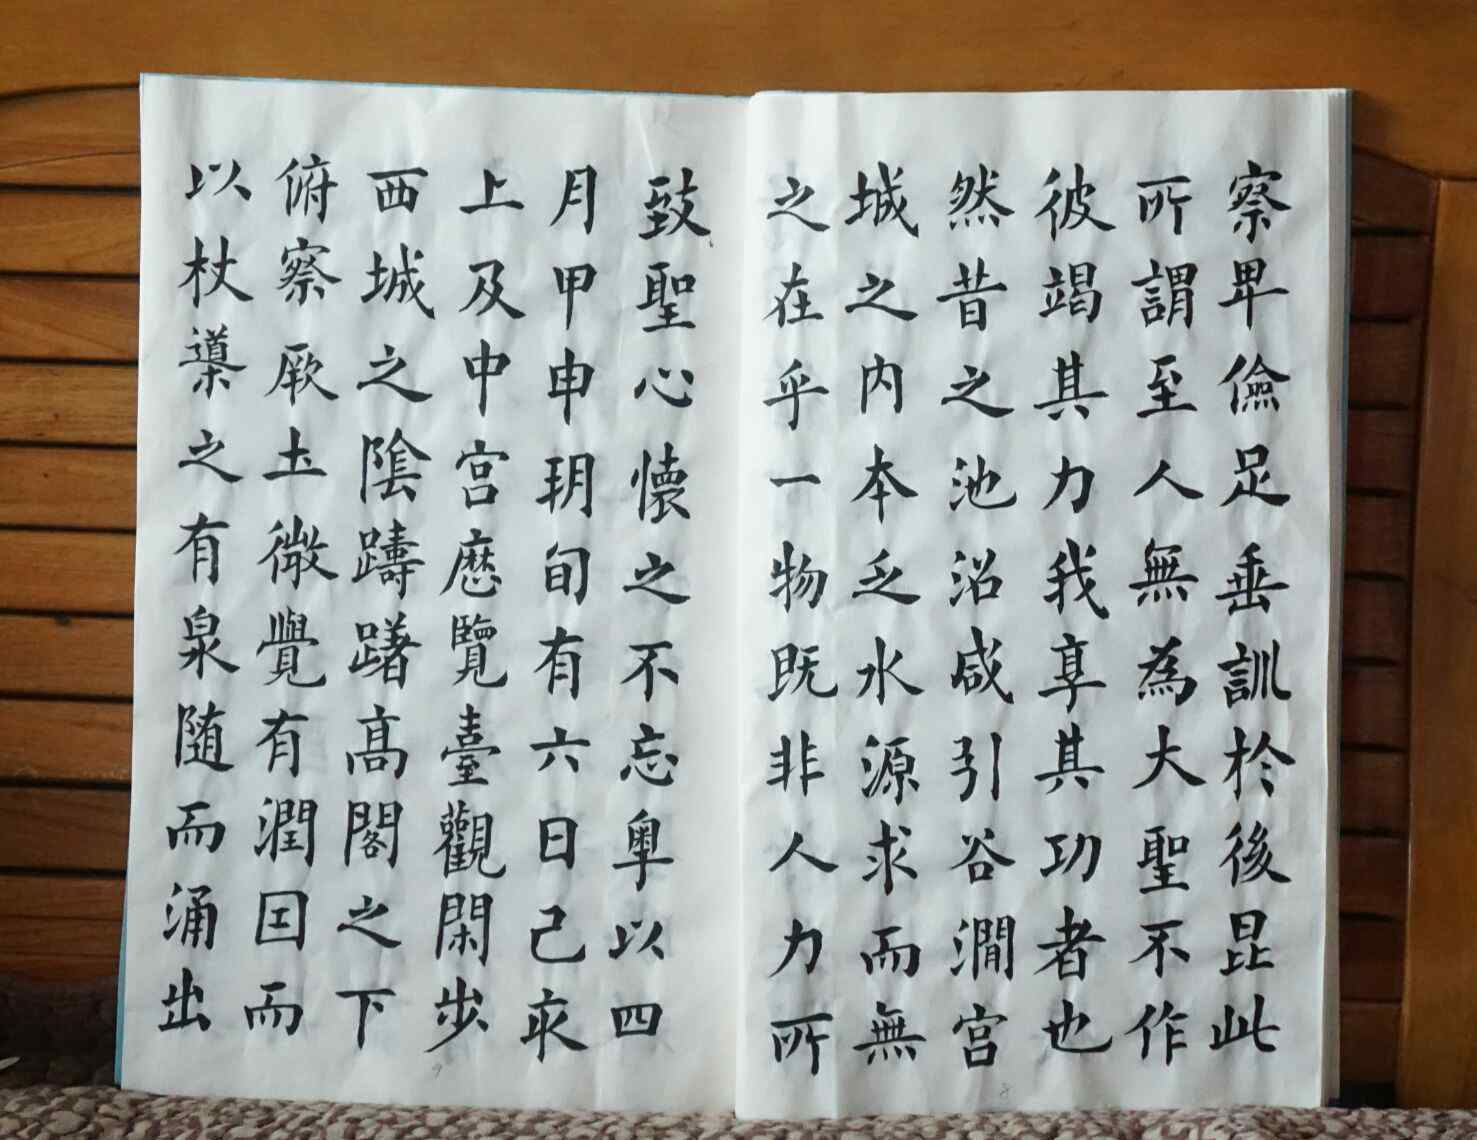 察卑儉足垂訓於後昆此
所謂至人無為大聖不作
彼竭其力我享其功者也
然昔之池沼咸引谷澗宮
城之內本乏水源求而無
之在乎一物既非人力所
致聖心懷之不忘粵以四
月甲申朔旬有六日己亥
上及中宮歷覽臺觀閑步
西城之陰躊躇高閣之下
俯察厥土微覺有潤因而
以杖導之有泉随而涌出
9
8